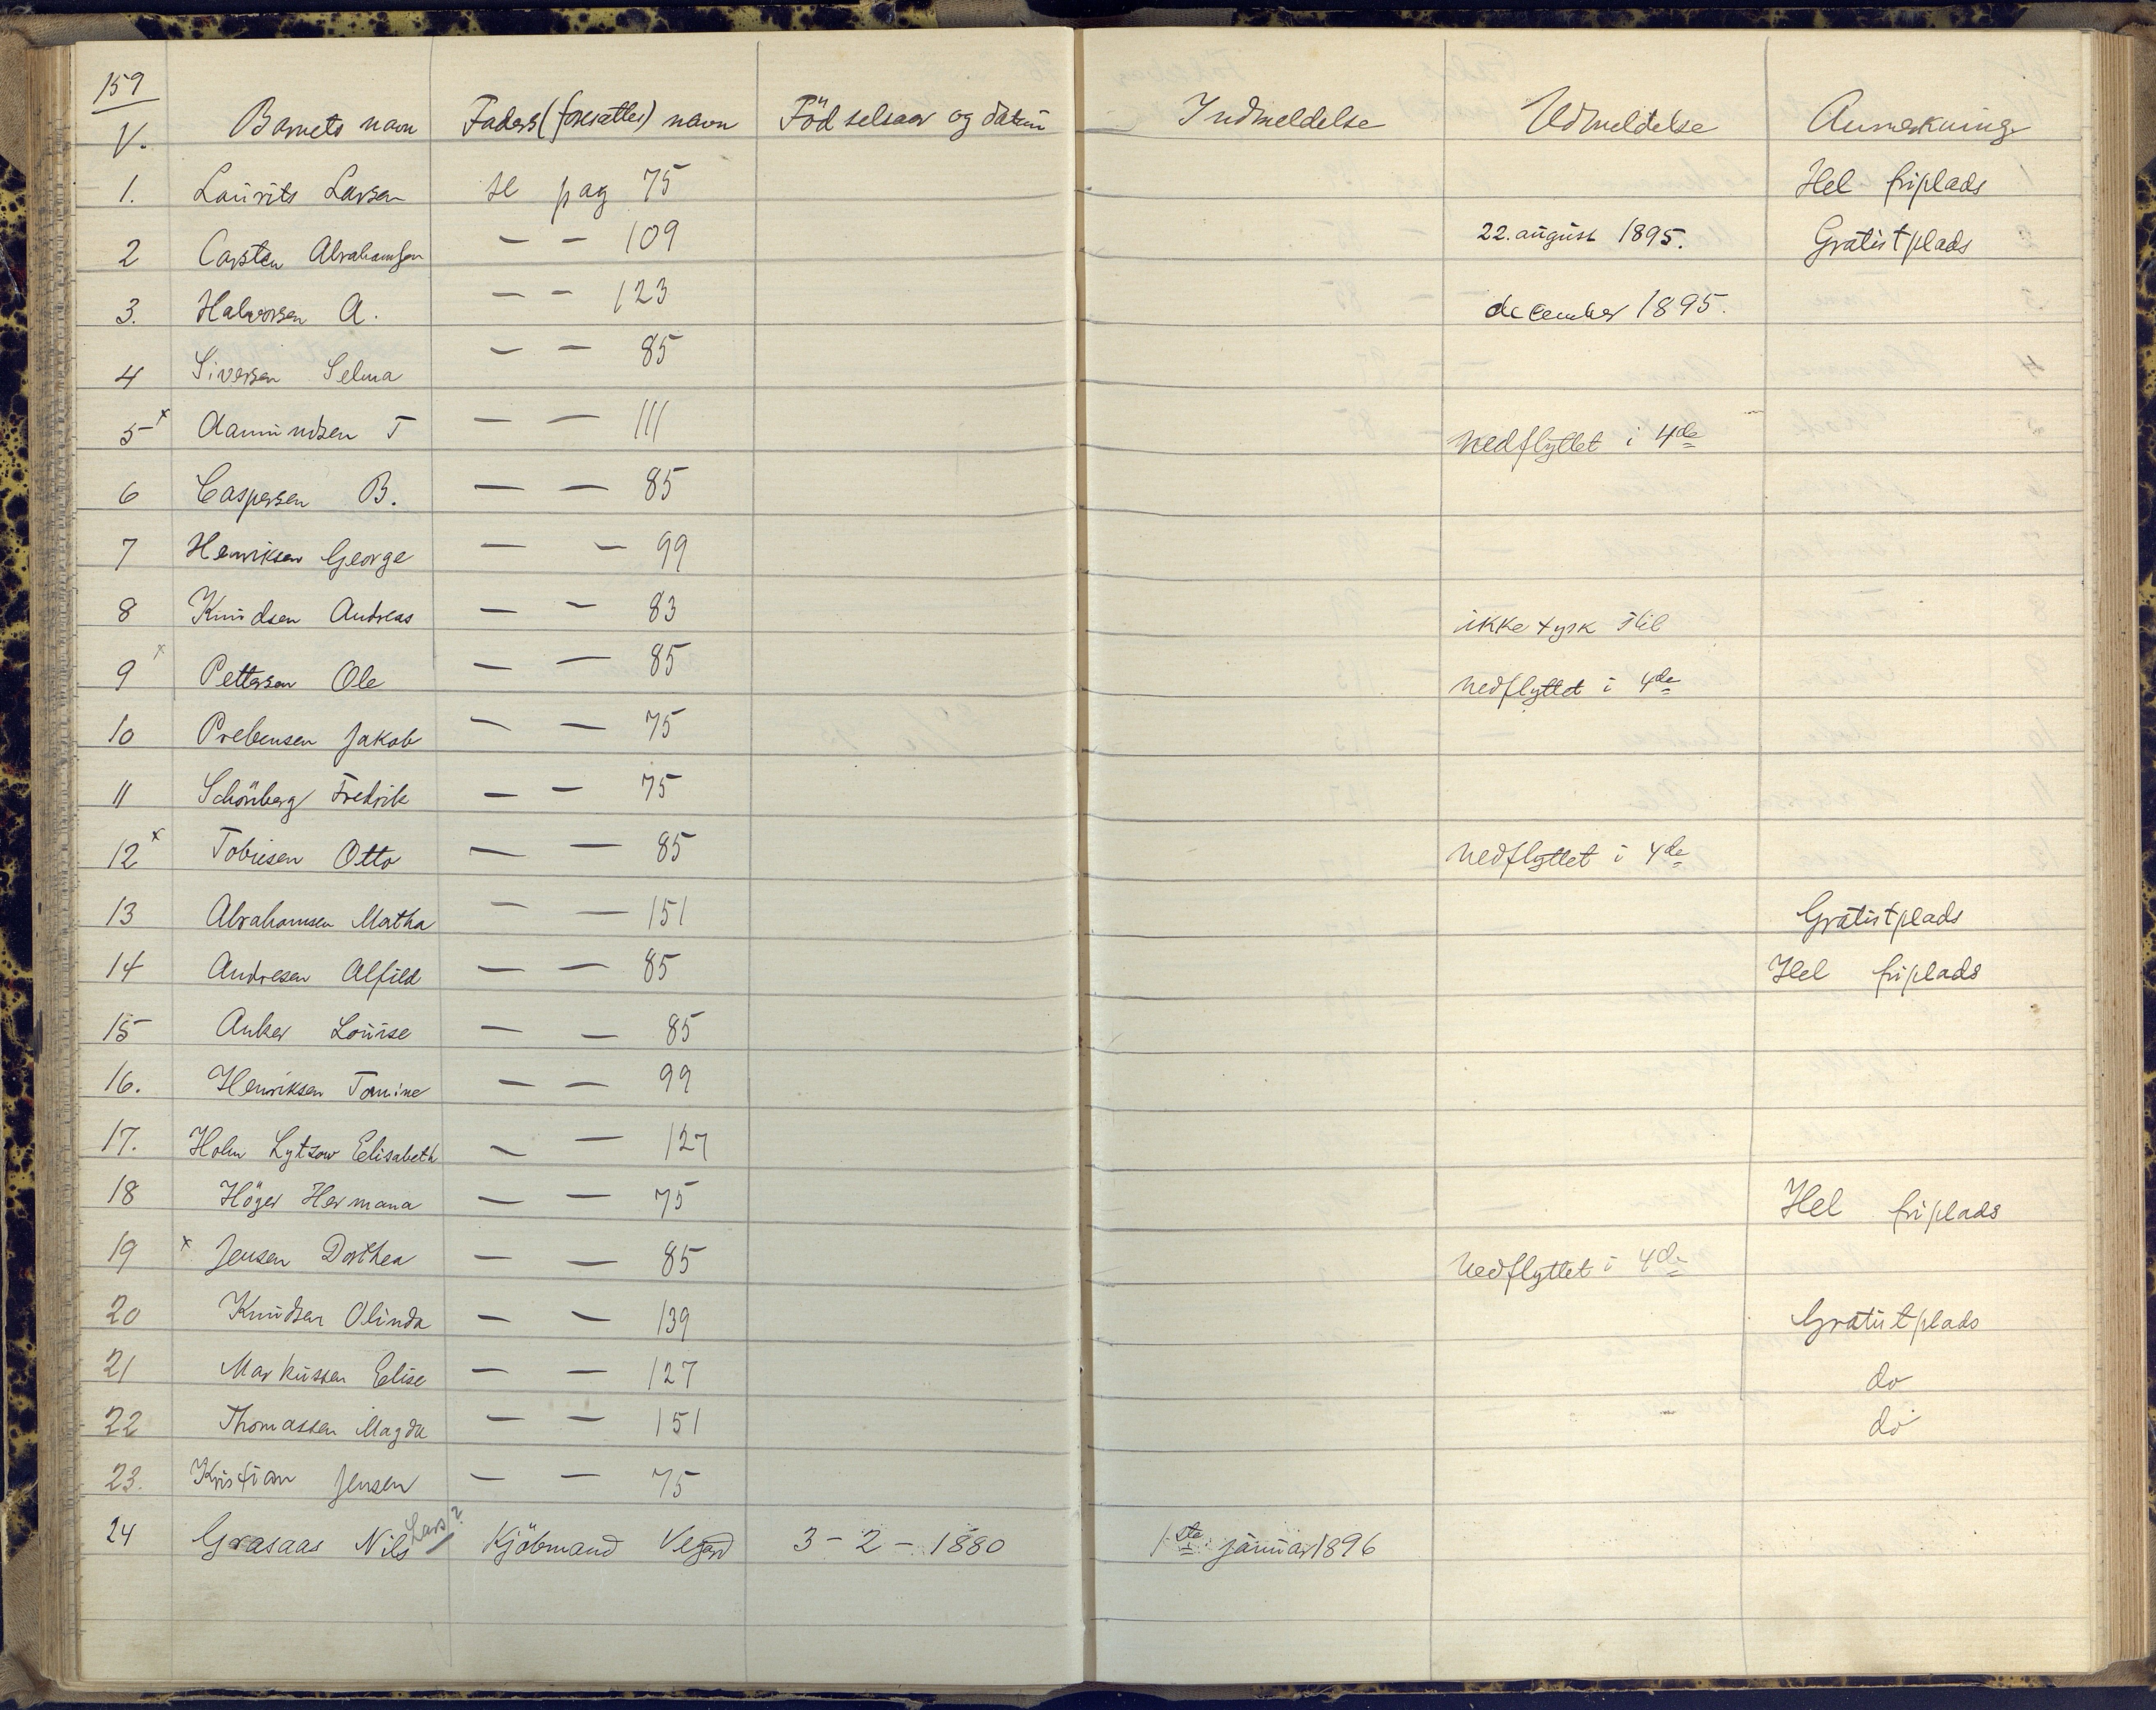 159
V. Barnets navn Faders (foresattes) navn Födselsaar og datum Indmeldelse Udmeldelse Anmerkning
1. Laurits Larsen se pag 75 Hel friplads
2 Carsten Abrahamsen — — 109 22. august 1895. Gratistplads
3. Halvorsen A. — — 123 december 1895.
4 Siversen Selma — — 85
5 x Aamundsen T — — 111 nedflyttet i 4de
6 Caspersen B. — — 85
7 Henriksen George — — 99
8 Knudsen Andreas — — 83 ikke tysk stil
9 x Pettersen Ole — — 85 nedflyttet i 4de
10 Prebensen Jakob — — 75
11 Schönberg Fredrik — — 75
12 x Tobiesen Otto — — 85 nedflyttet i 4de
13 Abrahamsen Martha — — 151 Gratistplads
14 Andresen Alfild — — 85 Hel friplads
15 Anker Louise — — 85
16. Henriksen Tomine — — 99
17. Holm Lytzow Elisabeth — — 127
18 Höyer Hermana — — 75 Hel friplads
19 x Jensen Dorthea — — 85 nedflyttet i 4de
20 Knudsen Olinda — — 139 Gratistplads
21 Markussen Elise — — 127 do
22 Thomassen Magda — — 151 do
23. Kristian Jensen — — 75
24 Grasaas Nils Lars? Kjöbmand 3-2-1880 1ste januar 1896